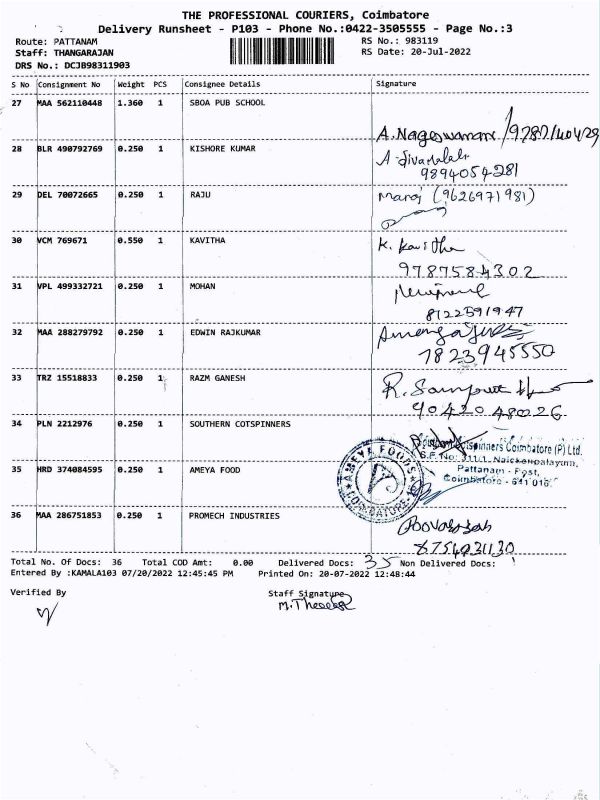 THE PROFESSIONAL COURIERS, Coimbatore
Delivery Runsheet - P103 - Phone No.:0422-3505555 - Page No.:3
Route: PATTANAM RS No.: 983119
Staff: THANGARAJAN RS Date: 20-Jul-2022
DRS No.: DCJB98311903
S No Consignment No Weight PCS Consignee Details Signature
27 MAA 562110448 1.360 1 SBOA PUB SCHOOL
A. Nageswaran
28 BLR 490792769 0.250 1 KISHORE KUMAR
9894054281
29 DEL 70072665 0.250 1 RAJU Manoj (9626971981)
30 VCM 769671 0.550 1 KAVITHA K. Kavitha
9787584302
31 VPL 499332721 0.250 1 MOHAN
8122591947
32 MAA 288279792 0.250 1 EDWIN RAJKUMAR
7823945550
33 TRZ 15518833 0.250 1 RAZM GANESH
9042048026
34 PLN 2212976 0.250 1 SOUTHERN COTSPINNERS
Cotspinners Coimbatore (P) Ltd.
S.F. No: 311/1, Naickenpalayam,
Pattanam - Post,
Coimbatore - 641 016.
35 HRD 374084595 0.250 1 AMEYA FOOD
AMEYA FOODS
COIMBATORE
36 MAA 286751853 0.250 1 PROMECH INDUSTRIES
8754031130
Total No. Of Docs: 36 Total COD Amt: 0.00 Delivered Docs: 35 Non Delivered Docs: 1
Entered By :KAMALA103 07/20/2022 12:45:45 PM Printed On: 20-07-2022 12:48:44
Verified By Staff Signature